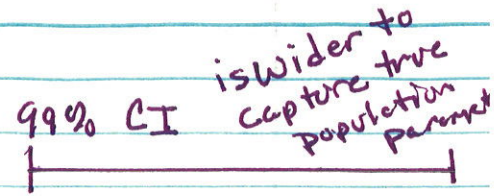 99% CI
is wider to
capture true
population
paramet